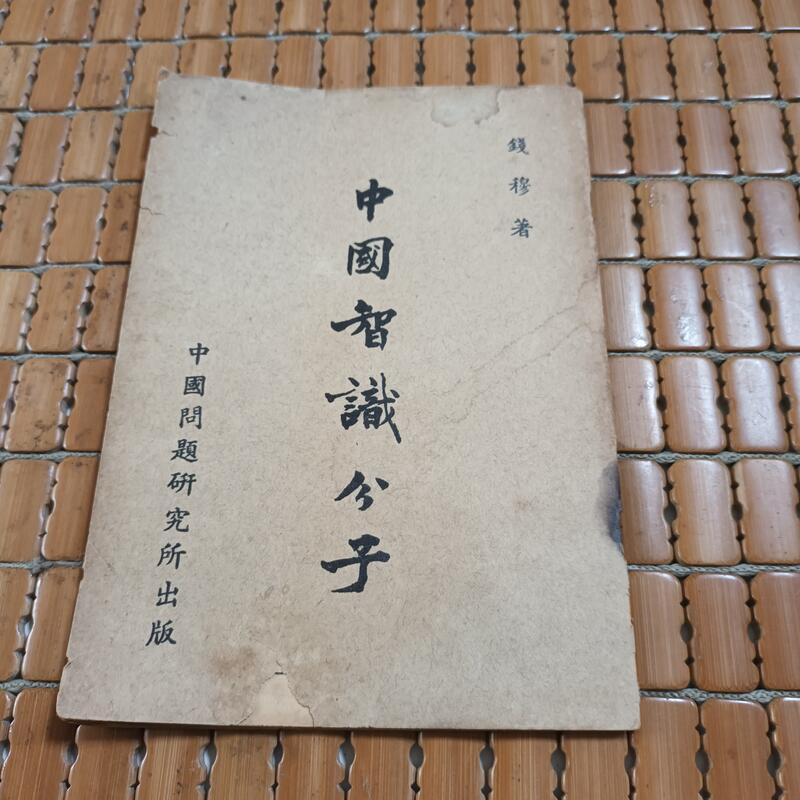 錢穆著
中國智識分子
中國問題研究所出版